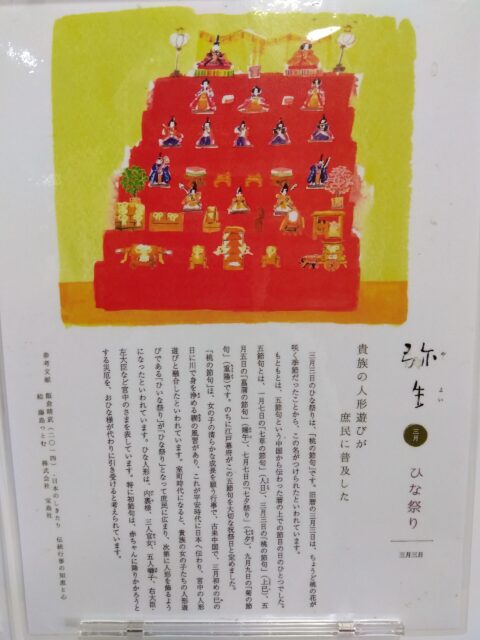 弥生
やよい
三月
ひな祭り
三月三日
貴族の人形遊びが
庶民に普及した
三月三日のひな祭りは、「桃の節句」です。旧暦の三月三日は、ちょうど桃の花が
咲く季節だったことから、この名がつけられたといわれています。
もともとは、五節句という中国から伝わった暦の上での節目の日のひとつでした。
五節句とは、一月七日の「七草の節句」(人日)、三月三日の「桃の節句」(上巳)、五
月五日の「菖蒲の節句」(端午)、七月七日の「七夕祭り」(七夕)、九月九日の「菊の節
句」(重陽)です。のちに江戸幕府がこの五節句を大切な祝祭日と定めました。
「桃の節句」は、女の子の清らかな成長を願う行事で、古来中国で、三月初めの巳の
日に川で身を浄める禊の風習があり、これが平安時代に日本へ伝わり、宮中の人形
遊びと融合したといわれています。室町時代になると、貴族の女の子たちの人形遊
びである「ひいな祭り」が「ひな祭り」となって庶民に広まり、次第に人形を飾るよう
になったといわれています。ひな人形は、内裏様、三人官女、五人囃子、右大臣・
左大臣など宮中のさまを表しています。特に初節句は、赤ちゃんに降りかかろうと
する災厄を、おひな様が代わりに引き受けると考えられています。
参考文献 飯倉晴武(二〇一四)『日本のしきたり 伝統行事の知恵と心
絵 藤島つとむ 株式会社 宝島社